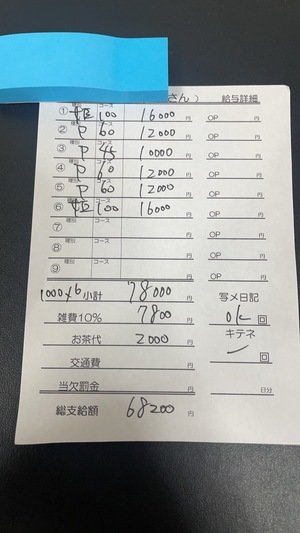 さん） 給与詳細
① 種別 コース 100 16000円 OP 円
② 種別 P コース 60 12000円 OP 円
③ 種別 P コース 45 10000円 OP 円
④ 種別 P コース 60 12000円 OP 円
⑤ 種別 P コース 60 12000円 OP 円
⑥ 種別 コース 100 16000円 OP 円
⑦ 種別 コース 円 OP 円
⑧ 種別 コース 円 OP 円
⑨ 種別 コース 円 OP 円
1000×6 小計 78000円 写メ日記
雑費10% 7800円 OK 回
お茶代 2000円 キテネ
交通費 円 ー 回
当欠罰金 円 日分
総支給額 68200円